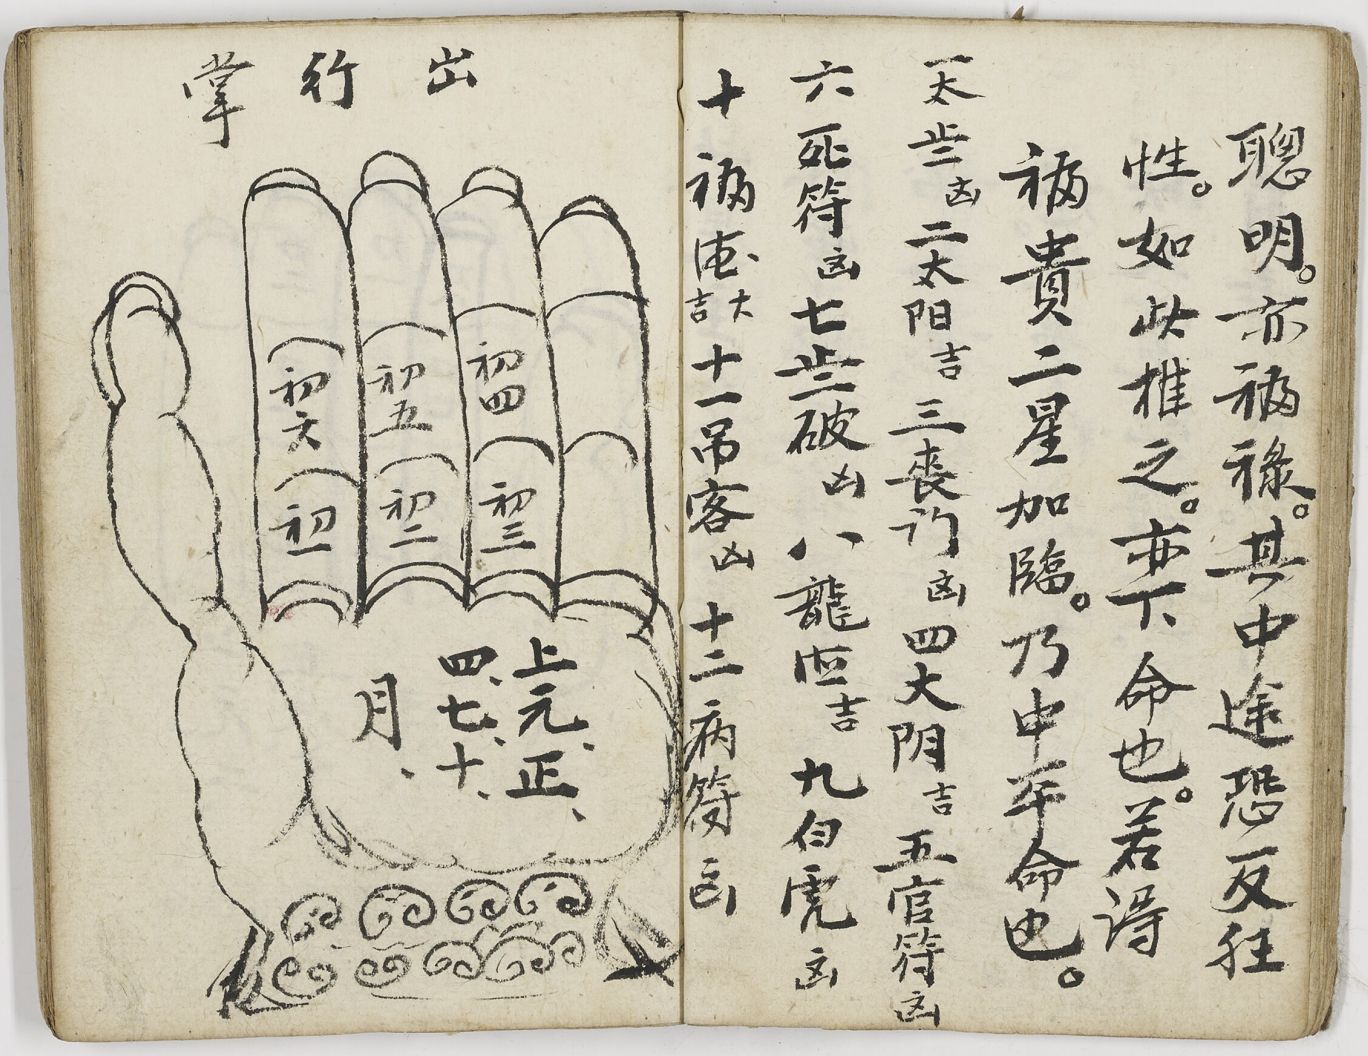 聰明。亦福祿。其中途恐反狂
性。如此推之。亦下命也。若得
福貴二星加臨。乃中平命也。
一太歲凶二太阳吉三喪门凶四大阴吉五官符凶
六死符凶七歲破凶八龍德吉九白虎凶
十福德大吉十一吊客凶十二病符凶
出行掌
初四
初五
初六
初三
初二
初一
上元、正、
四、七、十、
月、